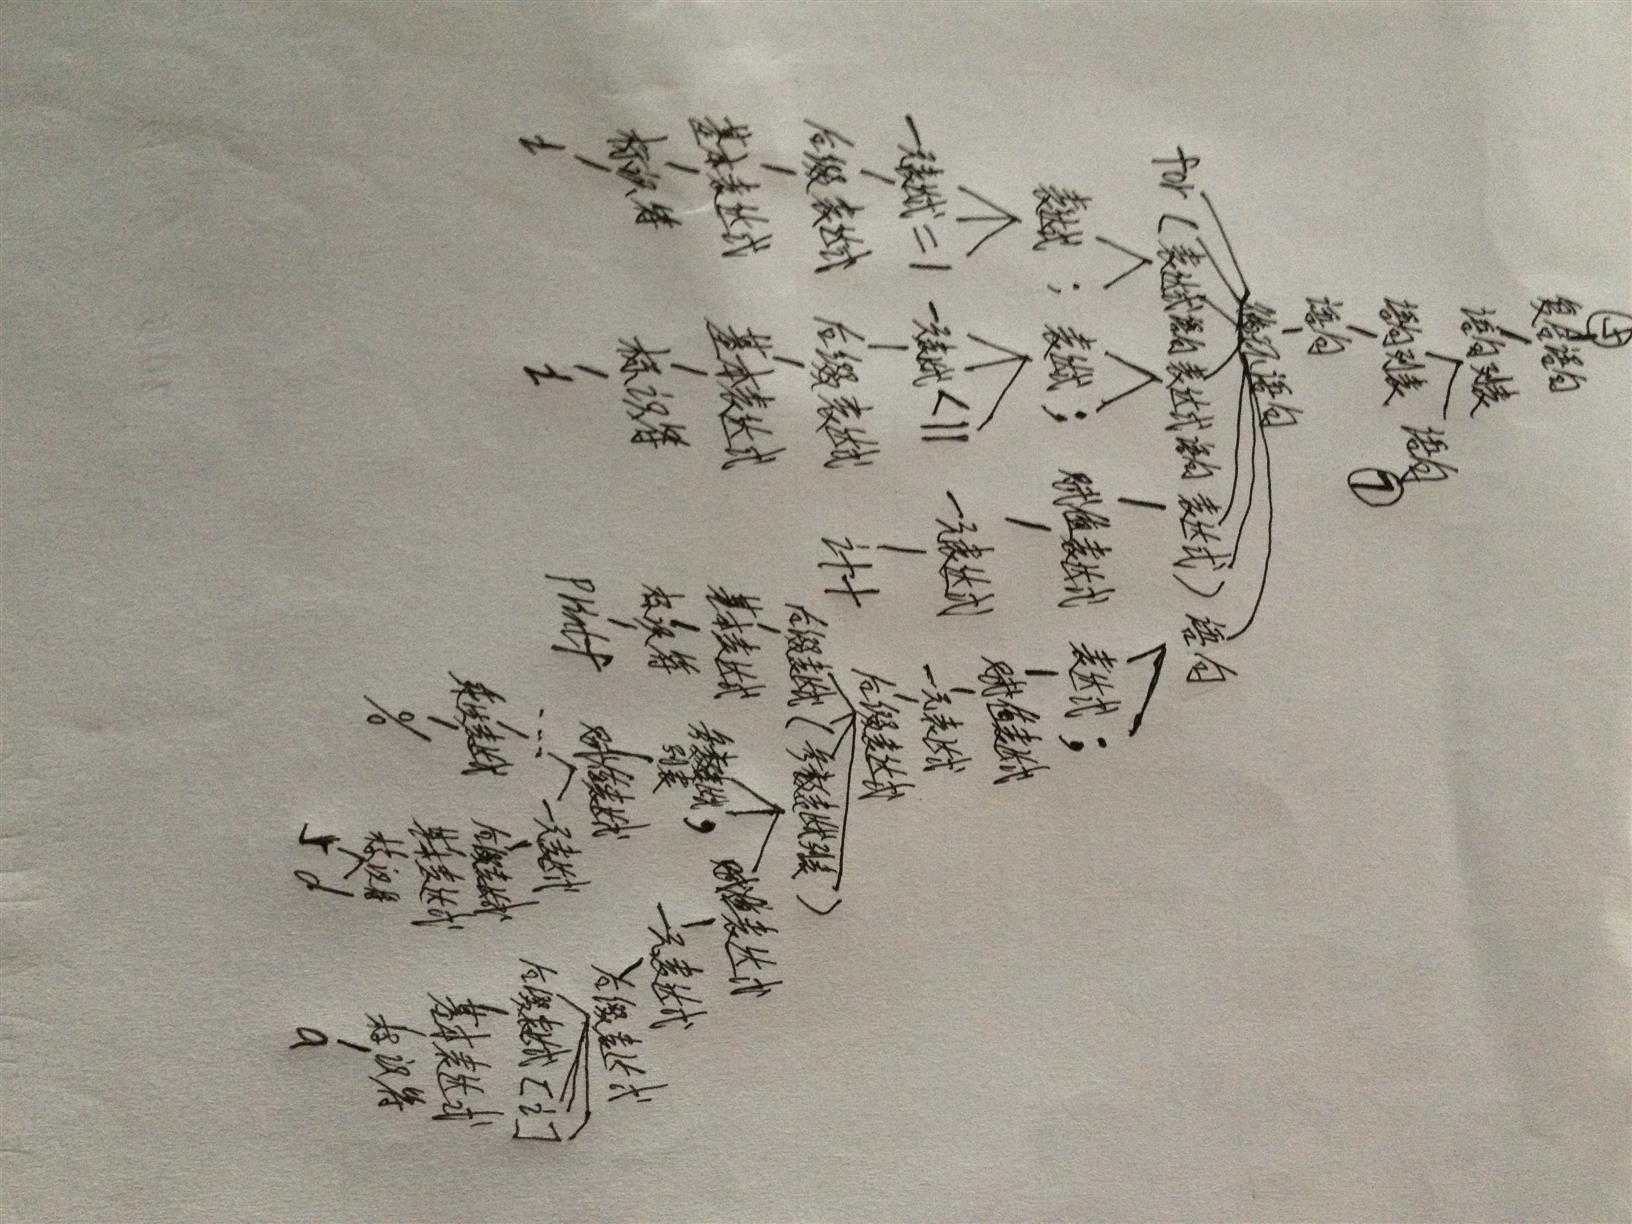 ⑤
复合语句
语句列表
语句列表 语句
⑦
语句
循环语句
for ( 表达式语句 表达式语句 表达式 ) 语句
表达式 ; 表达式 ; 赋值表达式 表达式 ;
一元表达式 = 1 一元表达式 < 11 一元表达式 赋值表达式
后缀表达式 后缀表达式 i++ 一元表达式
基本表达式 基本表达式 后缀表达式
标识符 标识符 后缀表达式 ( 参数表达式列表 )
i i 基本表达式 参数表达式列表 , 赋值表达式
标识符 赋值表达式 一元表达式
printf ... 一元表达式 后缀表达式
乘法表达式 后缀表达式 后缀表达式 [ i ]
% 基本表达式 基本表达式
标识符 标识符
d a